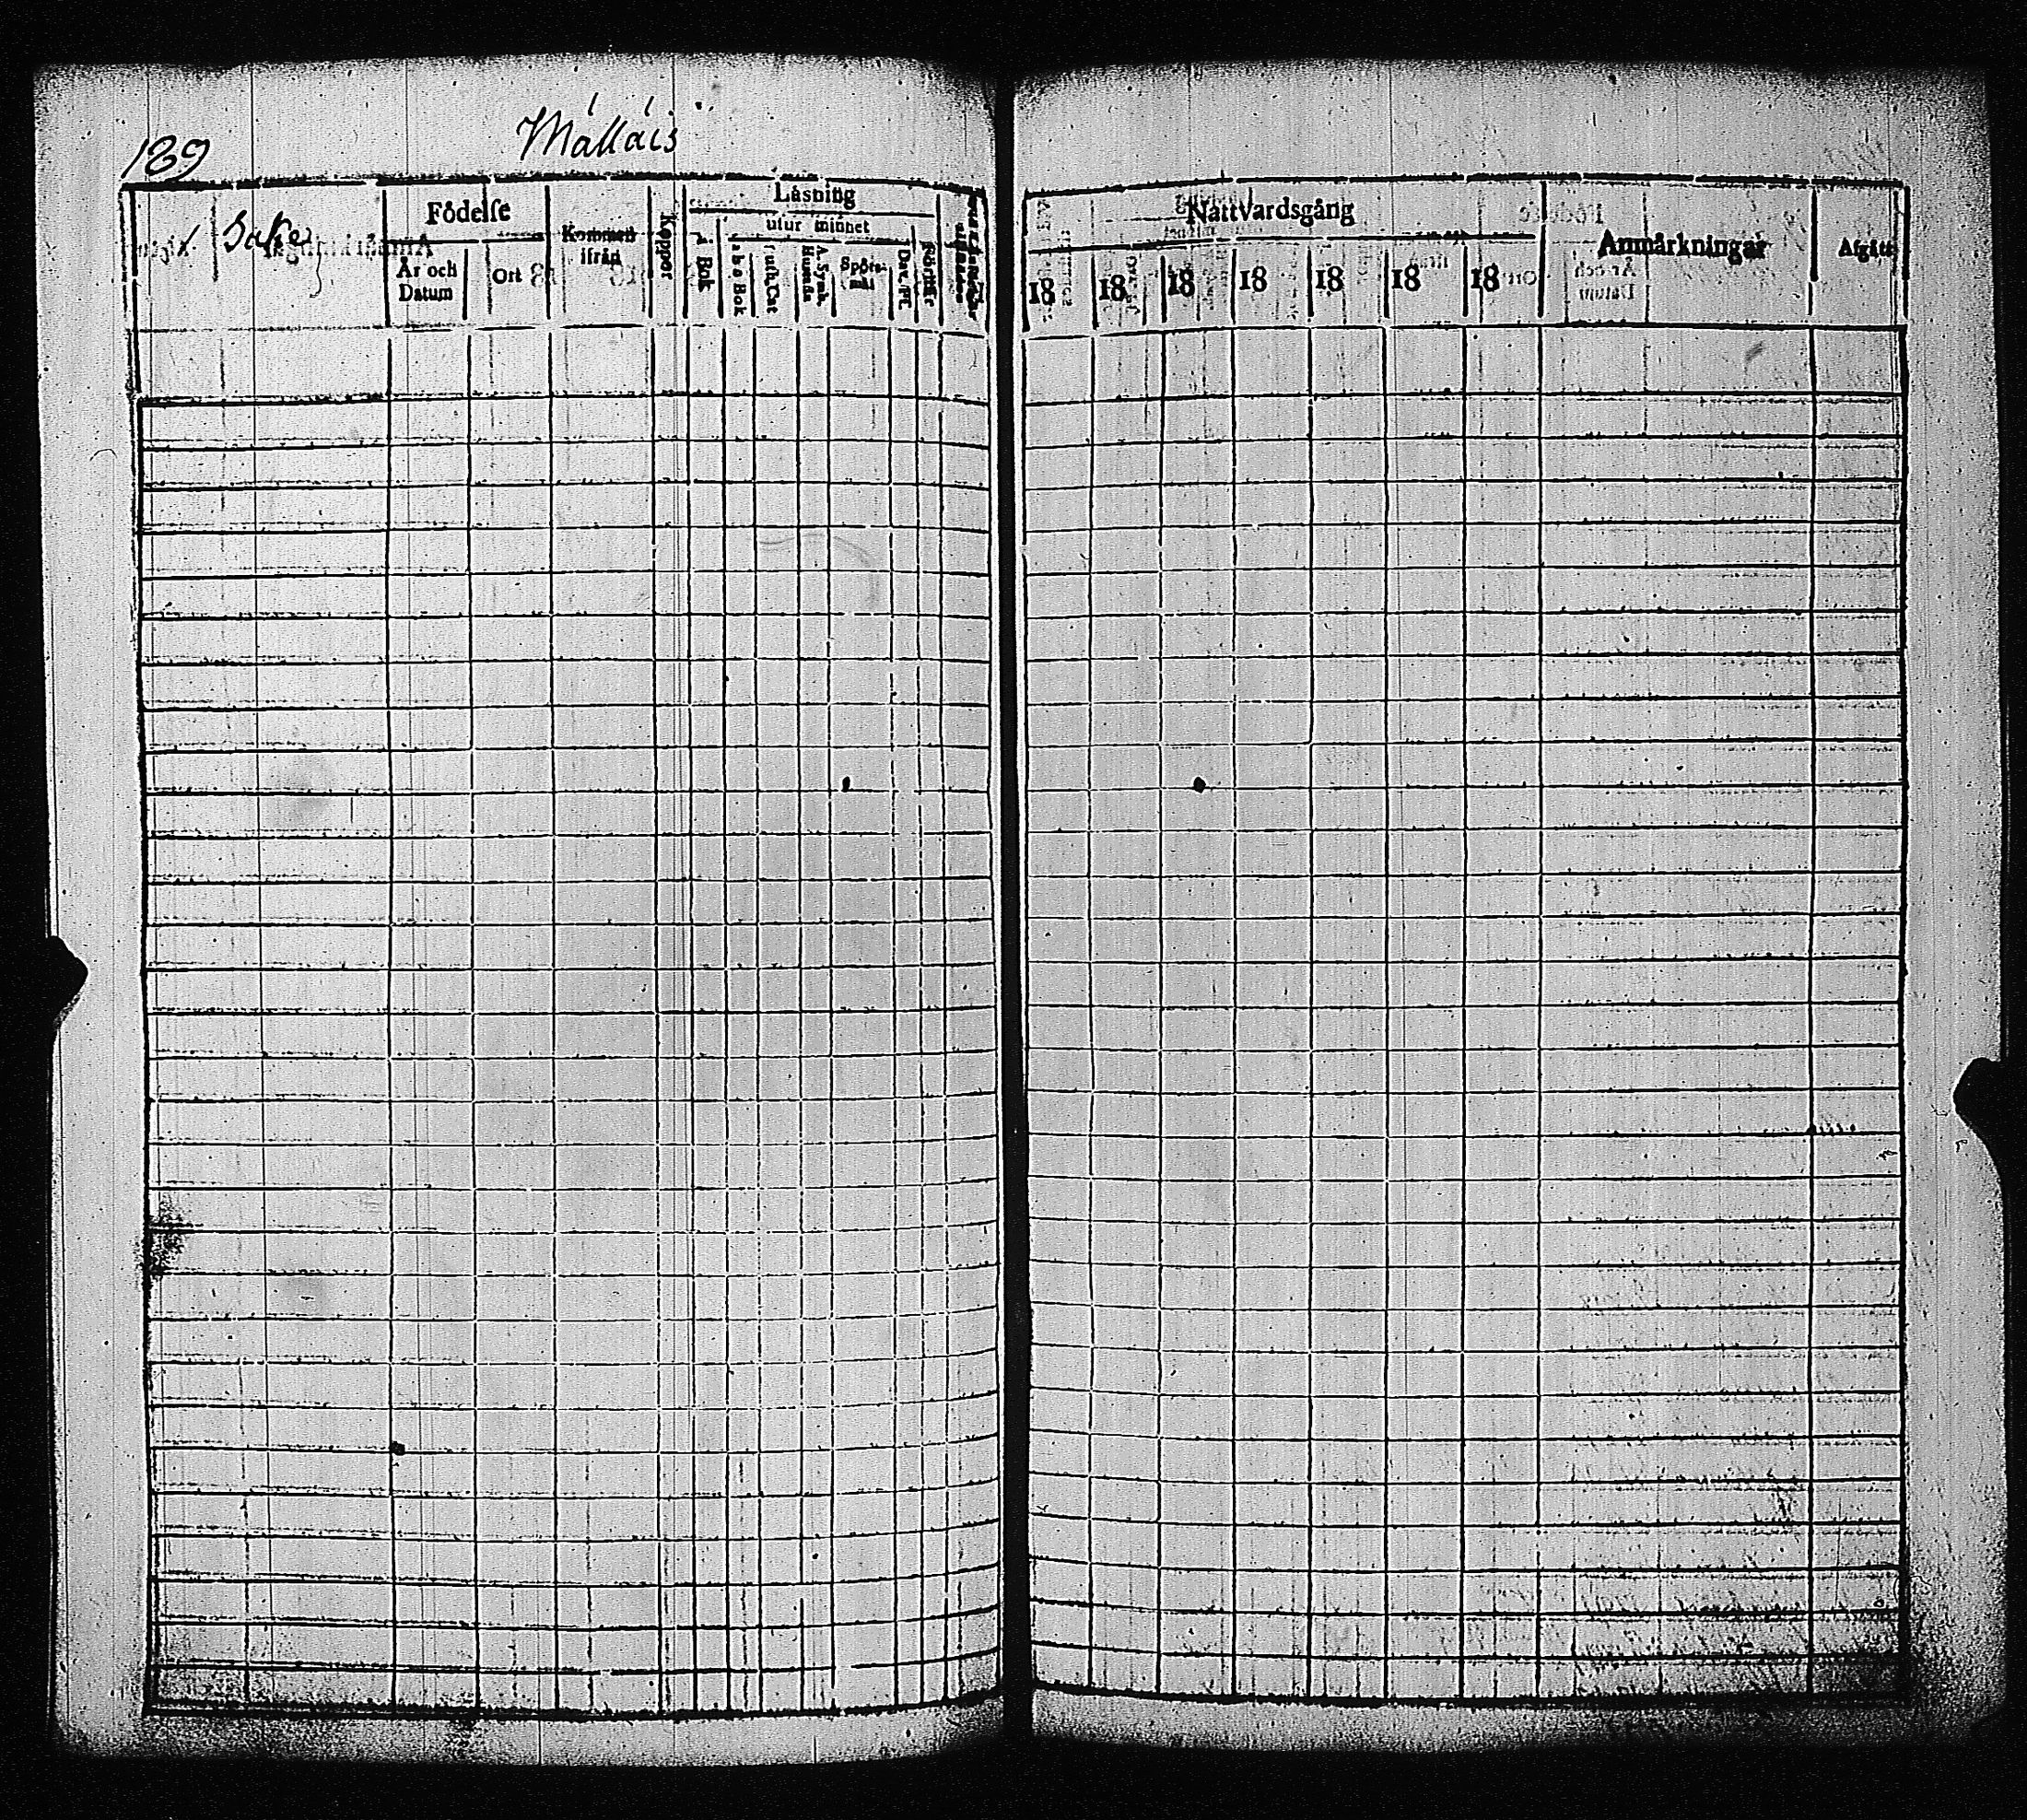 189
Málláis
Födelse
År och Datum
Ort
Kommen ifrån
Koppor
Läsning
utur minnet
i Bok
a b c Bok
Luth. Cat
A. Symb. Hustafla
Spörs-mål
Dav. Ps.
Förstår
Nattvardsgång
18 18 18 18 18 18 18
Anmärkningar
Afgått